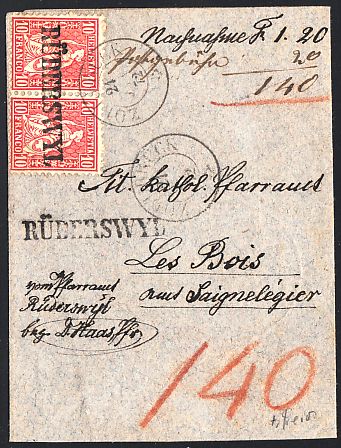 10 FRANCO 10
10 FRANCO 10
RÜDERSWYL
Nachnahme F. 1. 20
20
140
Tit. kathol. Pfarramt
RÜDERSWYL
Les Bois
amt Saignelégier
vom Pfarramt
Rüderswyl
bez. D. Haas, Pfr.
140